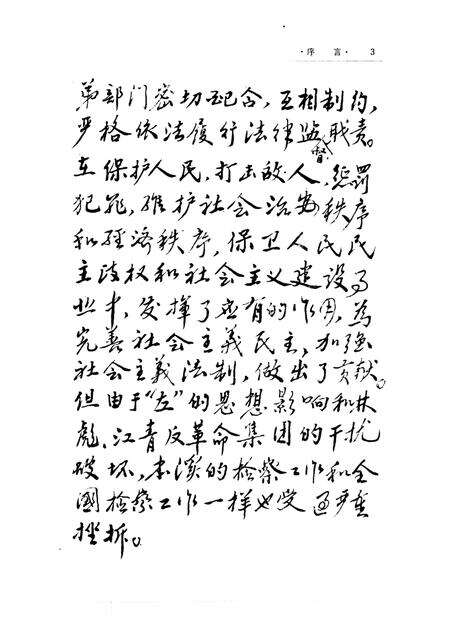 ·序 言· 3
第部门密切配合,互相制约,
严格依法履行法律监督职责。
在保护人民,打击敌人,惩罚
犯罪,维护社会治安秩序
和经济秩序,保卫人民民
主政权和社会主义建设事
业中,发挥了应有的作用,為
完善社会主義民主,加强
社会主義法制,做出了贡献。
但由于“左”的思想影响和林
彪、江青反革命集团的干扰
破坏,本溪的检察工作和全
國检察工作一样也受过严重
挫折。